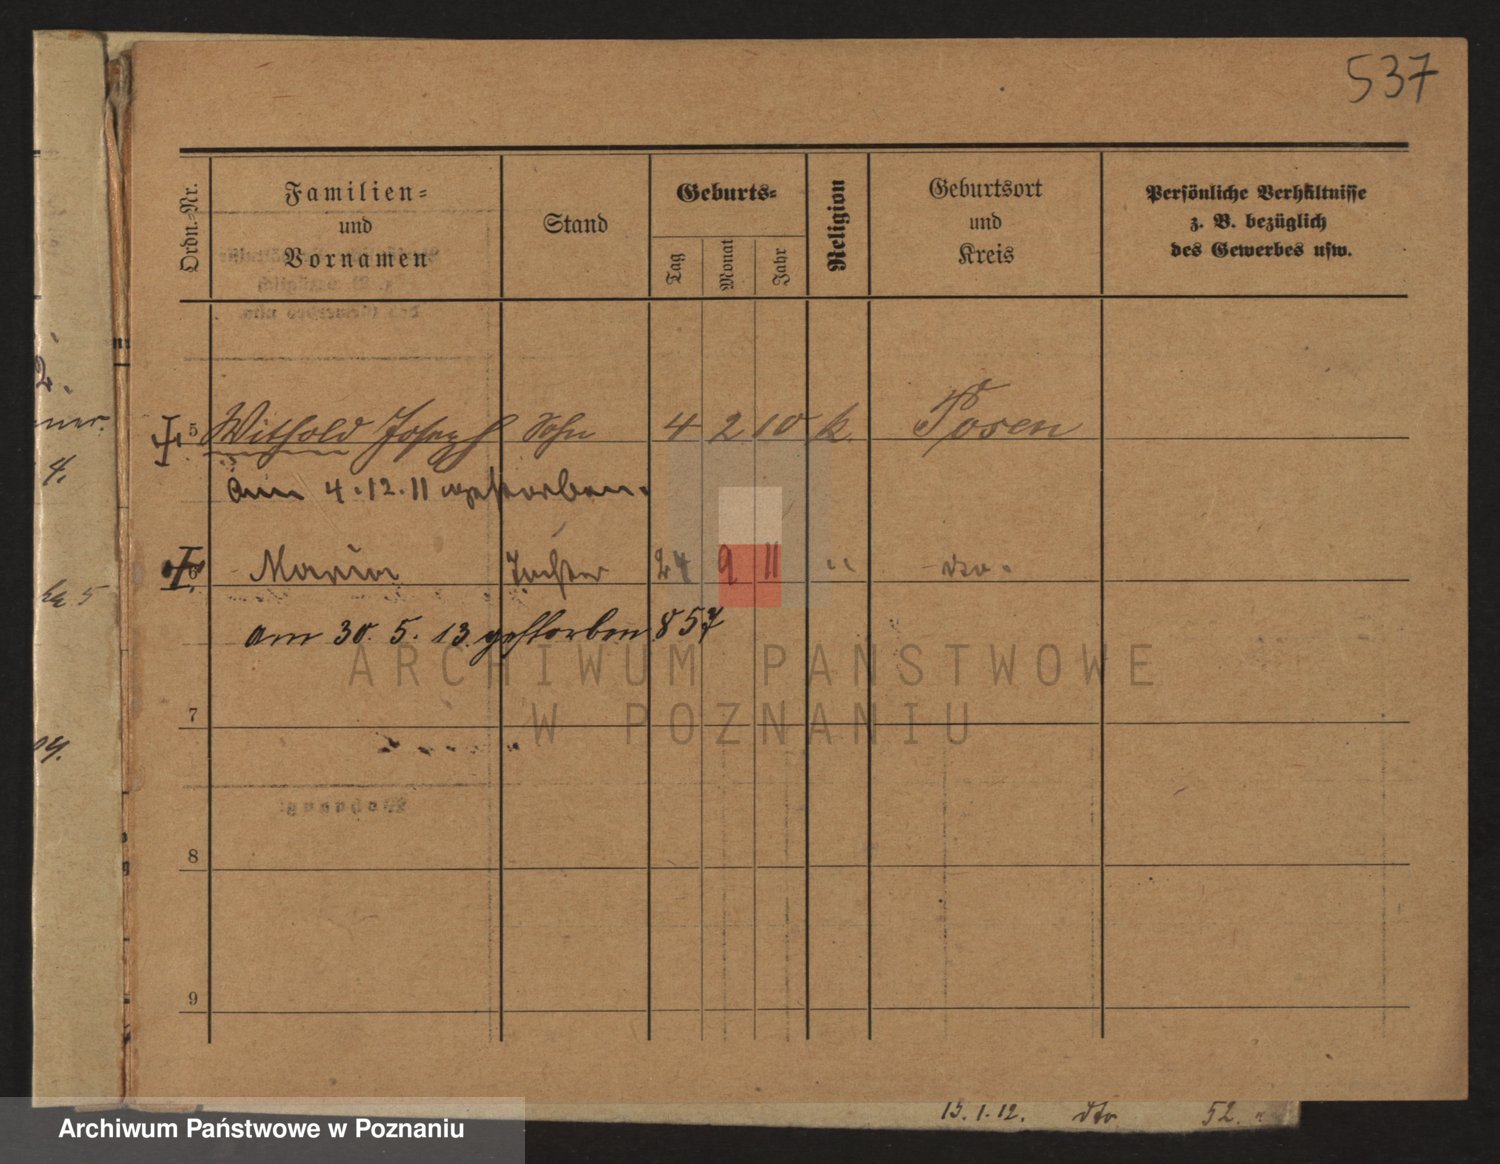 537
Ordn.-Nr.
Familien-
und
Vornamen
Stand
Geburts-
Tag
Monat
Jahr
Religion
Geburtsort
und
Kreis
Persönliche Verhältnisse
z. B. bezüglich
des Gewerbes usw.
5 Withold Joseph Sohn 4 2 10 k. Posen
am 4.12.11 gestorben.
6 Maria Tochter 24 9 11 " dto.
am 30. 5. 13 gestorben 857
ARCHIWUM PAŃSTWOWE
W POZNANIU
7
8
9
15.1.12. dto 52.
Archiwum Państwowe w Poznaniu